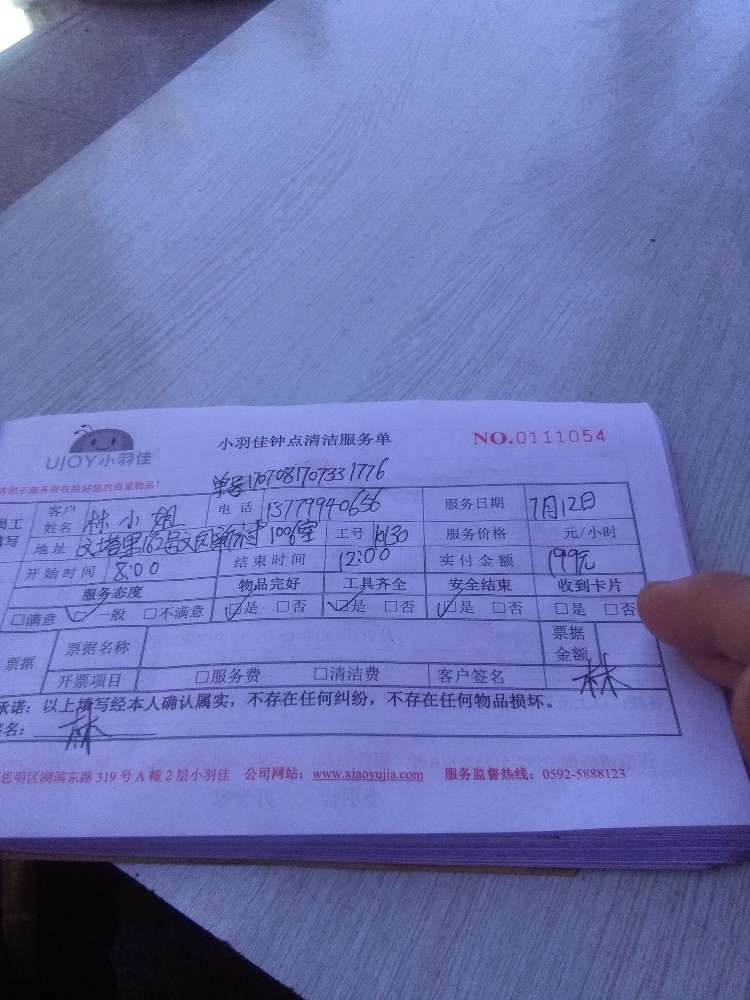 小羽佳钟点清洁服务单 NO.0111054
UJOY小羽佳
单号170708170733 1776
客户姓名 林小姐 电话 13779940656 服务日期 7月12日
地址 文塔里163号文园新村 1006室 工号 10130 服务价格 元/小时
开始时间 8:00 结束时间 12:00 实付金额 199元
服务态度 物品完好 工具齐全 安全结束 收到卡片
□满意 □一般 □不满意 □是 □否 □是 □否 □是 □否 □是 □否
票据 票据名称 票据金额
开票项目 □服务费 □清洁费 客户签名 林
承诺：以上填写经本人确认属实，不存在任何纠纷，不存在任何物品损坏。
签名： 林
思明区湖滨东路 319 号 A 幢 2 层小羽佳 公司网站：www.xiaoyujia.com 服务监督热线：0592-5888123